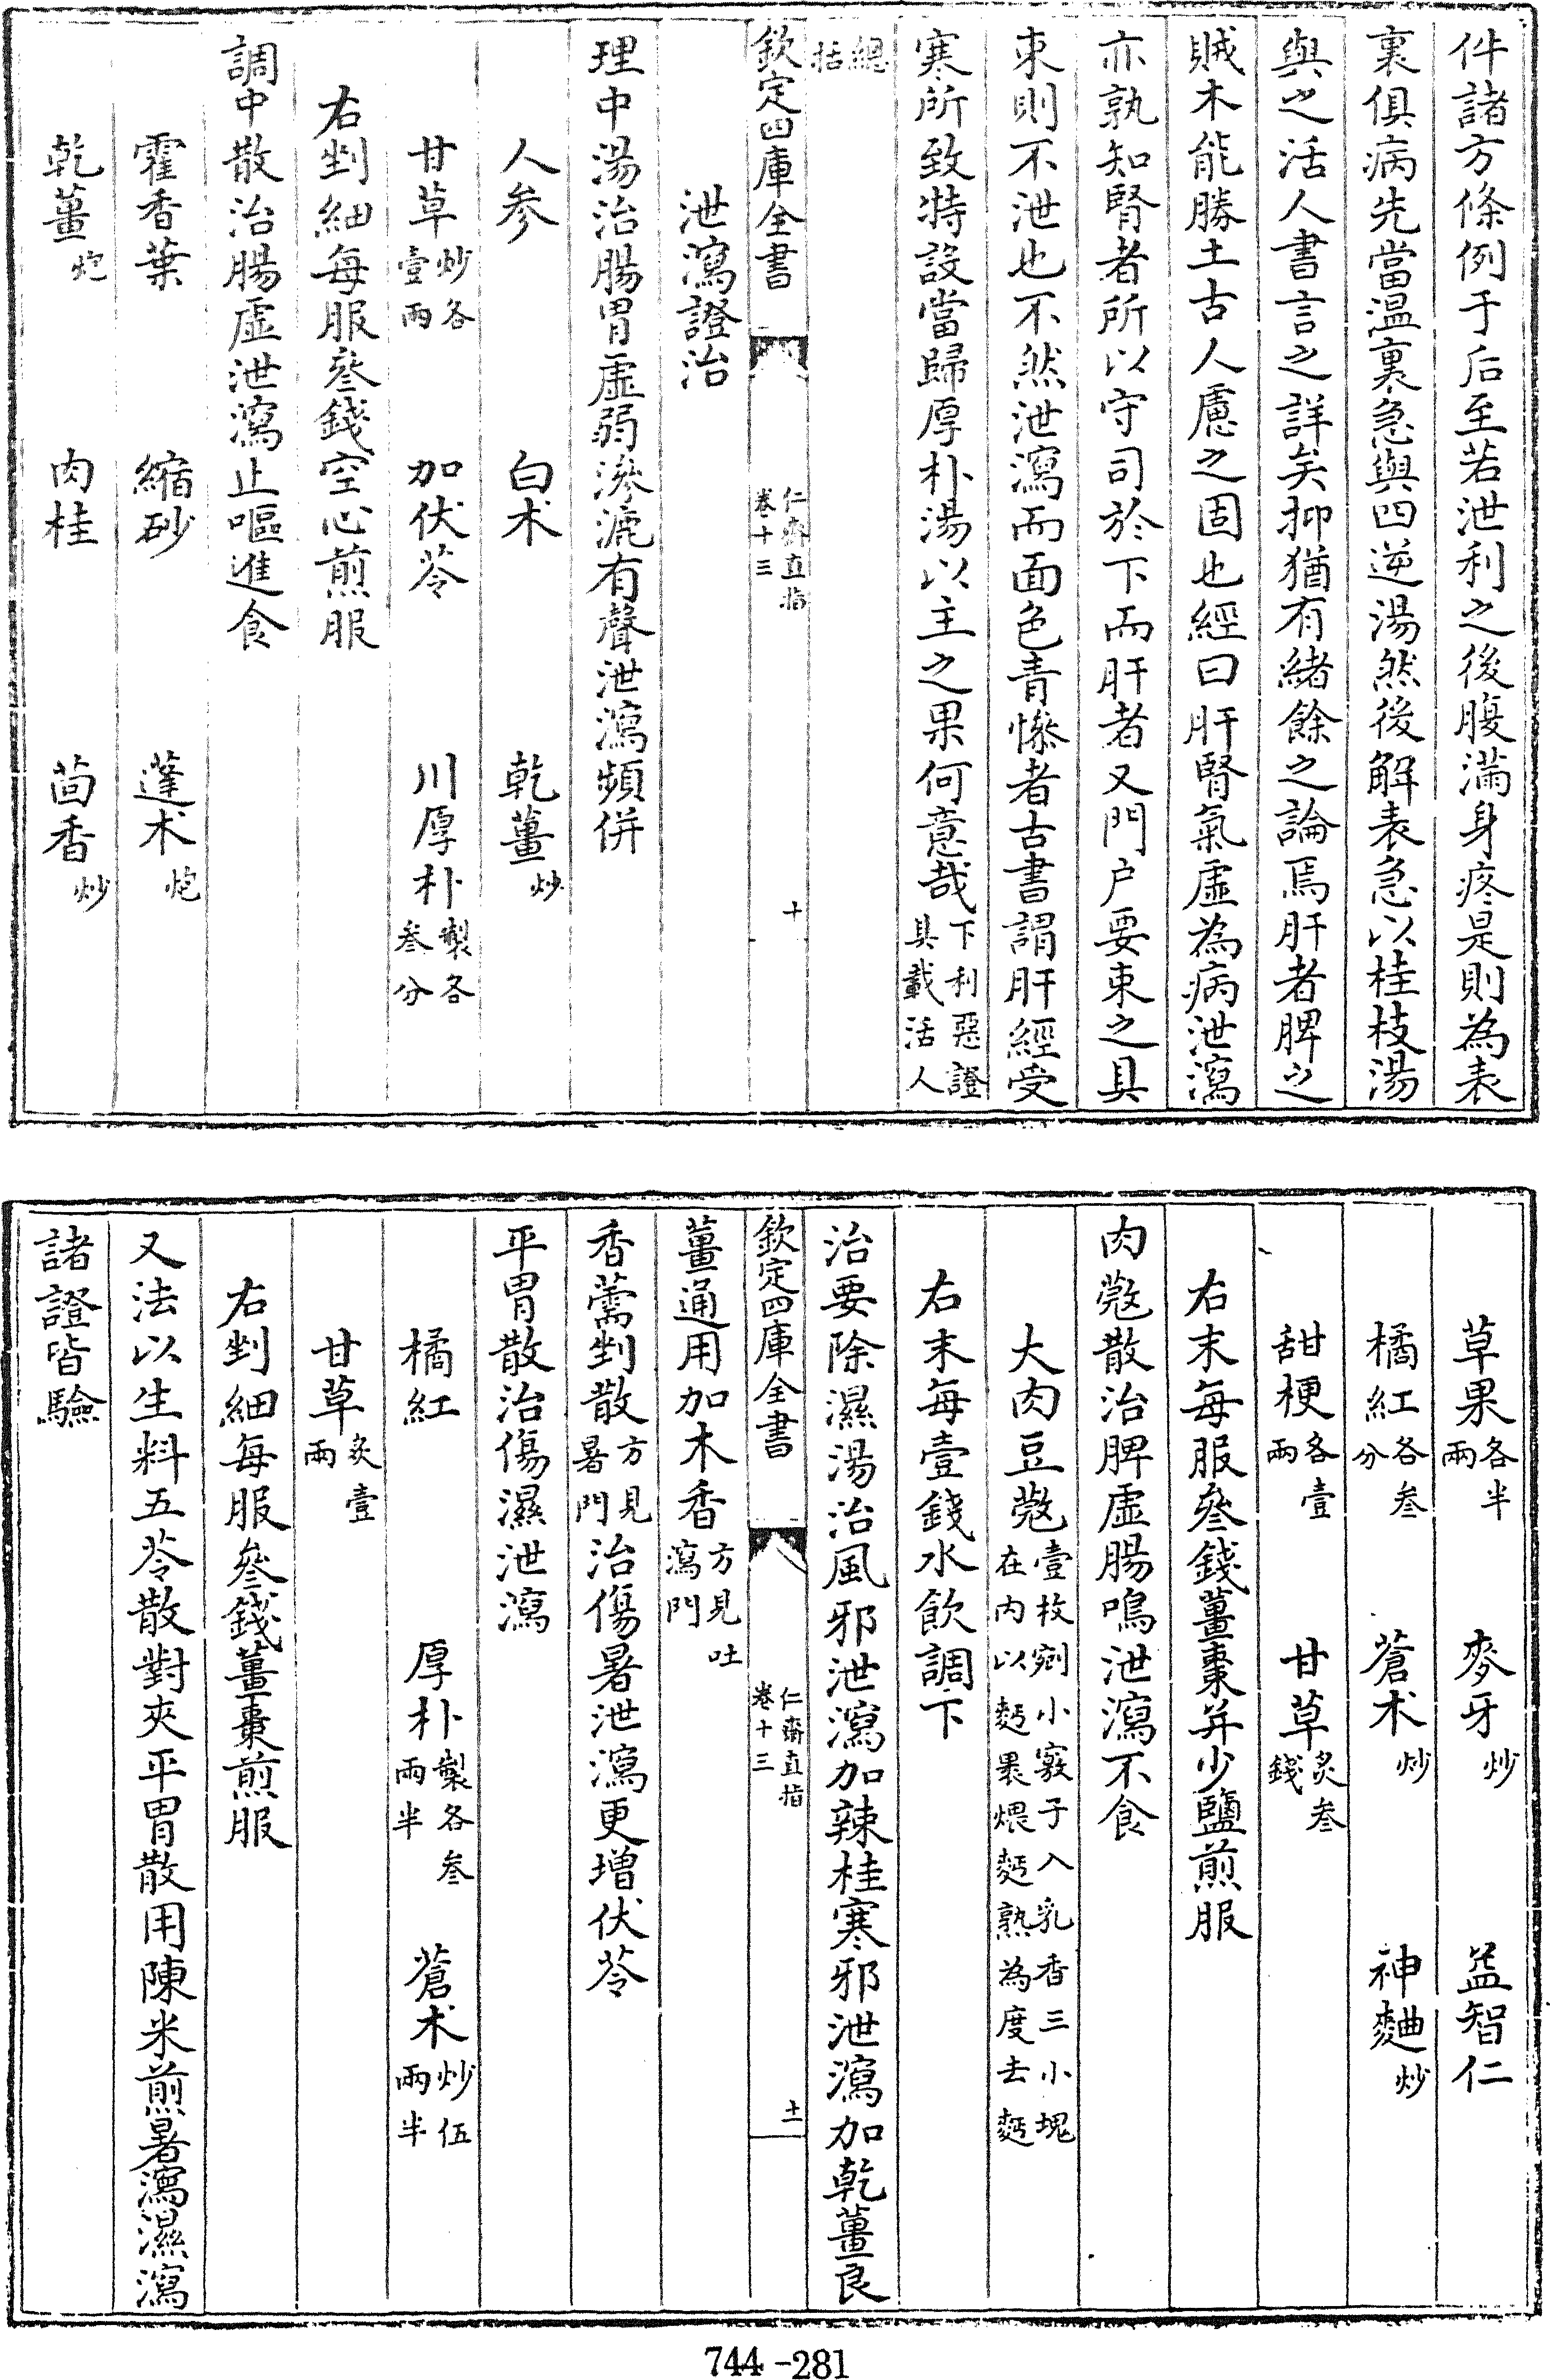 件諸方條例于后至若泄利之後腹滿身疼是則為表
裏俱病先當温裏急與四逆湯然後解表急以桂枝湯
與之活人書言之詳矣抑猶有緒餘之論焉肝者脾之
賊木能勝土古人慮之固也經曰肝腎氣虛為病泄瀉
亦孰知腎者所以守司於下而肝者又門户要束之具
束則不泄也不然泄瀉而面色青慘者古書謂肝經受
寒所致特設當歸厚朴湯以主之果何意哉下利惡證具載活人
總括
欽定四庫全書
仁齋直指
卷十三
十
泄瀉證治
理中湯治腸胃虛弱滲漉有聲泄瀉頻併
人參 白术 乾薑炒
甘草炒各壹兩 加伏苓 川厚朴製各叁分
右剉細每服叄錢空心煎服
調中散治腸虛泄瀉止嘔進食
霍香葉 縮砂 蓬术炮
乾薑炮 肉桂 茴香炒
草果各半兩 麥牙炒 益智仁
橘紅各叁分 蒼术炒 神麯炒
甜梗各壹兩 甘草炙叁錢
右末每服叄錢薑棗并少鹽煎服
肉䓻散治脾虛腸鳴泄瀉不食
大肉豆䓻壹枚剜小竅子入乳香三小塊在内以麪裹煨麪熟為度去麪
右末每壹錢水飲調下
治要除濕湯治風邪泄瀉加辣桂寒邪泄瀉加乾薑良
欽定四庫全書
仁齋直指
卷十三
十一
薑通用加木香方見吐瀉門
香薷剉散方見暑門治傷暑泄瀉更增伏苓
平胃散治傷濕泄瀉
橘紅 厚朴製各叁兩半 蒼术炒伍兩半
甘草炙壹兩
右剉細每服叄錢薑棗煎服
又法以生料五苓散對夾平胃散用陳米煎暑瀉濕瀉
諸證皆驗
744-281